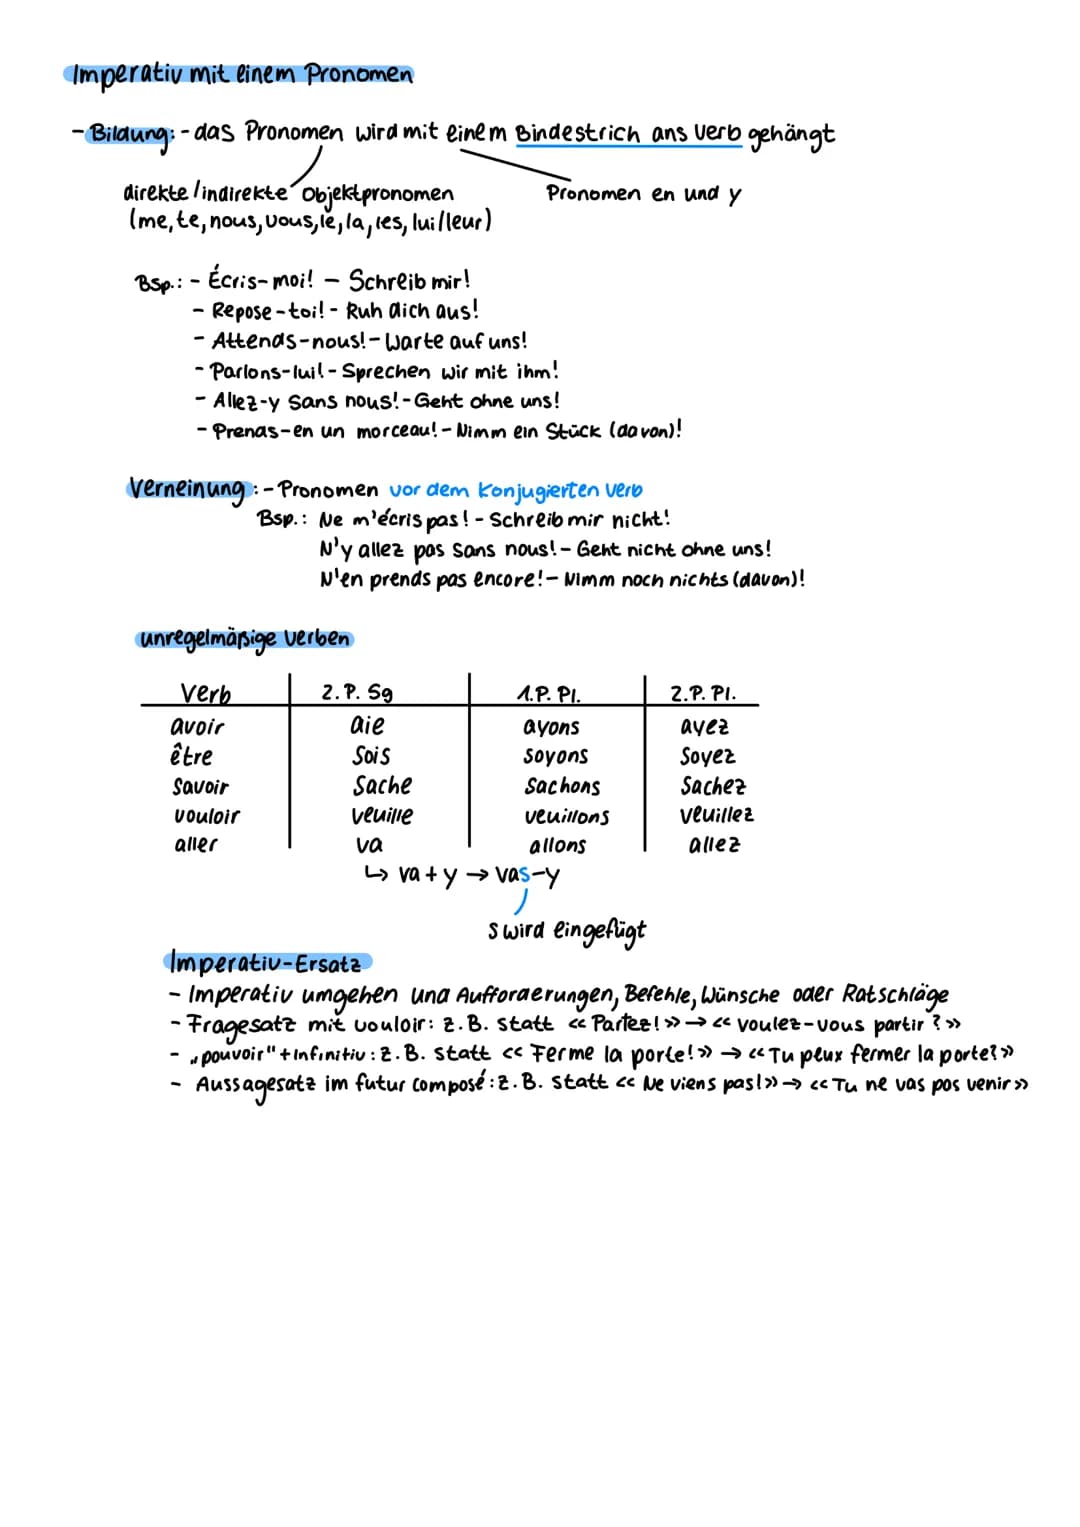 Imperativ mit einem Pronomen
- Bildung: - das Pronomen wird mit einem Bindestrich ans Verb gehängt
direkte/indirekte Objektpronomen Pronomen en und y
(me, te, nous, vous, le, la, les, lui/leur)
Bsp.: - Écris-moi! - Schreib mir!
- Repose-toi! - Ruh dich aus!
- Attends-nous! - Warte auf uns!
- Parlons-lui! - Sprechen wir mit ihm!
- Allez-y sans nous! - Geht ohne uns!
- Prends-en un morceau! - Nimm ein Stück (davon)!
Verneinung: - Pronomen vor dem konjugierten Verb
Bsp.: Ne m'écris pas! - Schreib mir nicht!
N'y allez pas sans nous! - Geht nicht ohne uns!
N'en prends pas encore! - Nimm noch nichts (davon)!
unregelmäßige Verben
Verb 2. P. Sg 1. P. Pl. 2. P. Pl.
avoir aie ayons ayez
être Sois soyons Soyez
savoir Sache Sachons Sachez
vouloir veuille veuillons veuillez
aller va allons allez
↳ va + y → vas-y
s wird eingefügt
Imperativ-Ersatz
- Imperativ umgehen und Aufforderungen, Befehle, Wünsche oder Ratschläge
- Fragesatz mit vouloir: z.B. statt << Partez! >> → << voulez-vous partir? >>
- „pouvoir" + Infinitiv: z.B. statt << Ferme la porte! >> → << Tu peux fermer la porte? >>
- Aussagesatz im futur composé: z.B. statt << Ne viens pas! >> → << Tu ne vas pas venir >>